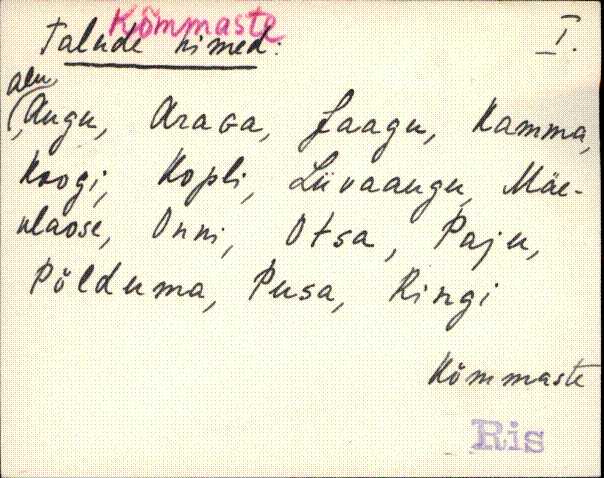 Kõmmaste
Talude nimed: I.
alu
(Augu, Arava, Jaagu, Kamma,
Koogi, Kopli, Liivaaugu, Mäe-
ulaose, Onni, Otsa, Paju,
Põlduma, Pusa, Ringi
Kõmmaste
Ris